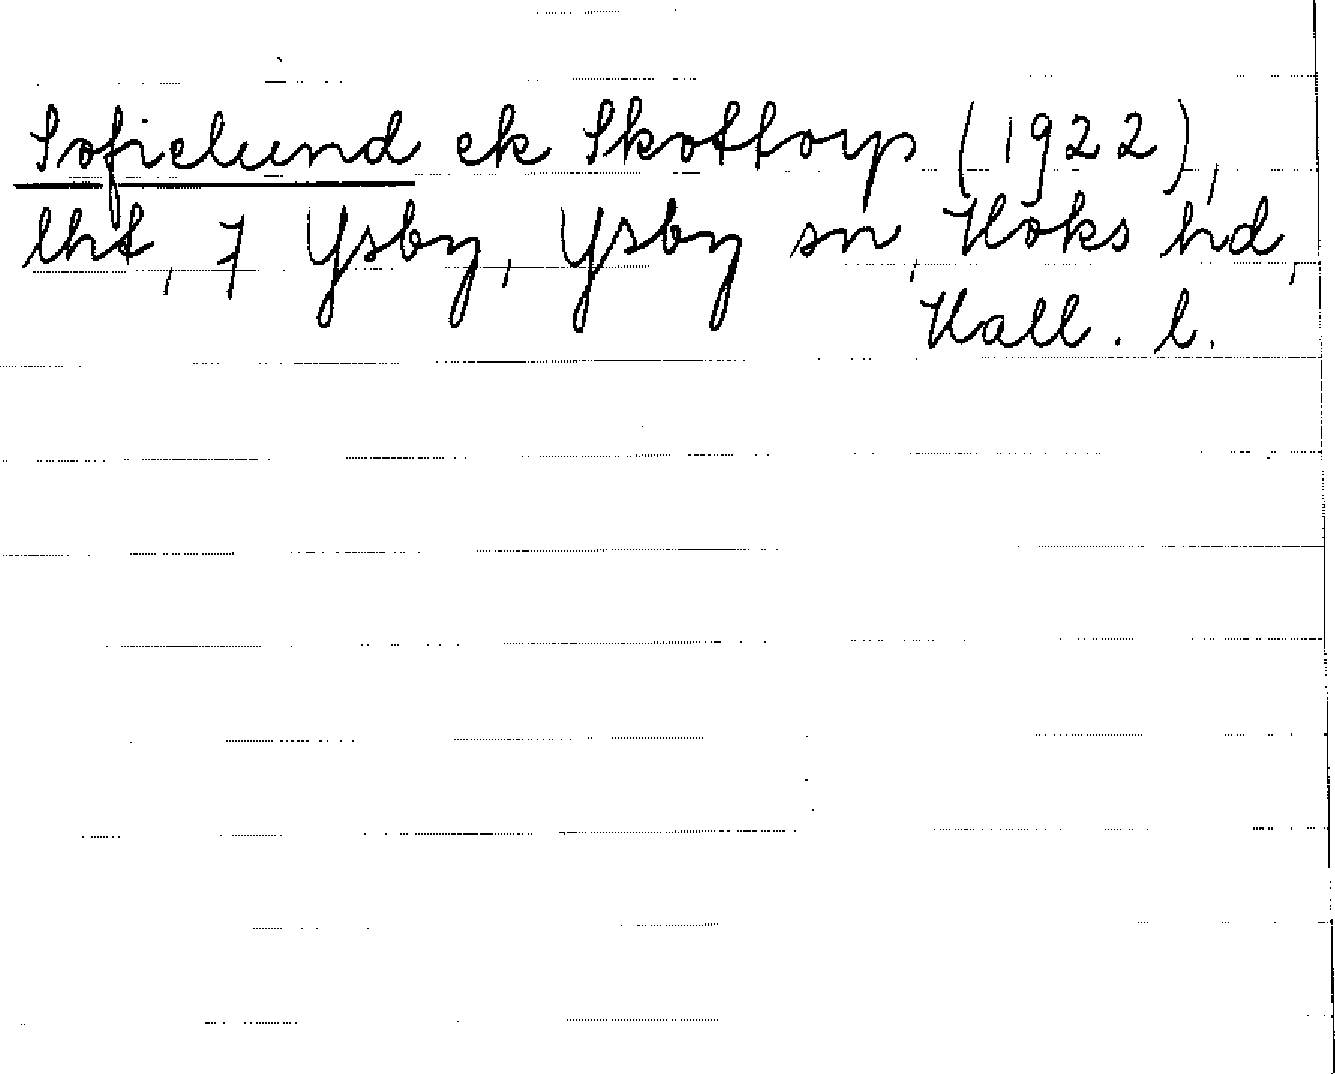 Sofielund ek Skottorp (1922),
lht, 7 Ysby, Ysby sn, Höks hd,
Hall. l.